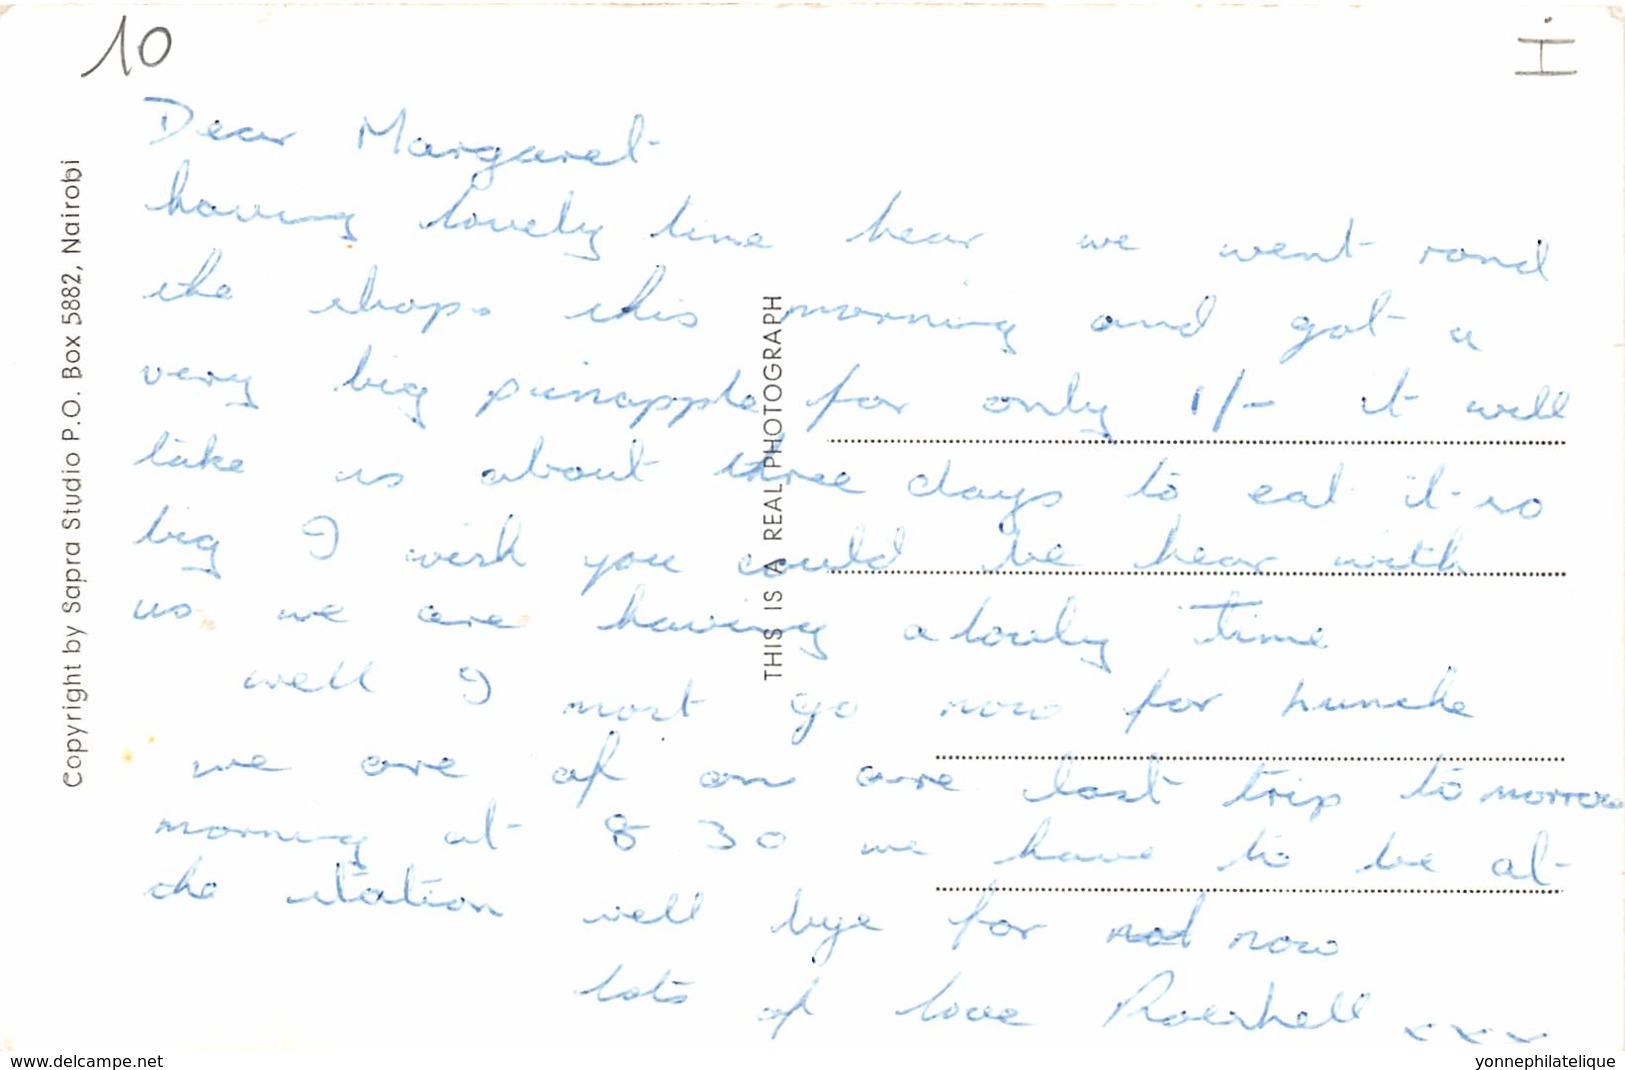 10
Dear Margaret
having lovely time hear we went rond
the shops this morning and got a
very big pinapple for only 1/- it will
take us about three days to eat it so
big I wish you could be hear with
us we are having a lovly time
well I most go now for hunche
we are of on are last trip to morrow
morning at 8 30 we have to be at
the station well bye for now
lots of love xxx
Copyright by Sapra Studio P.O. Box 5882, Nairobi
THIS IS A REAL PHOTOGRAPH
www.delcampe.net
yonnephilatelique